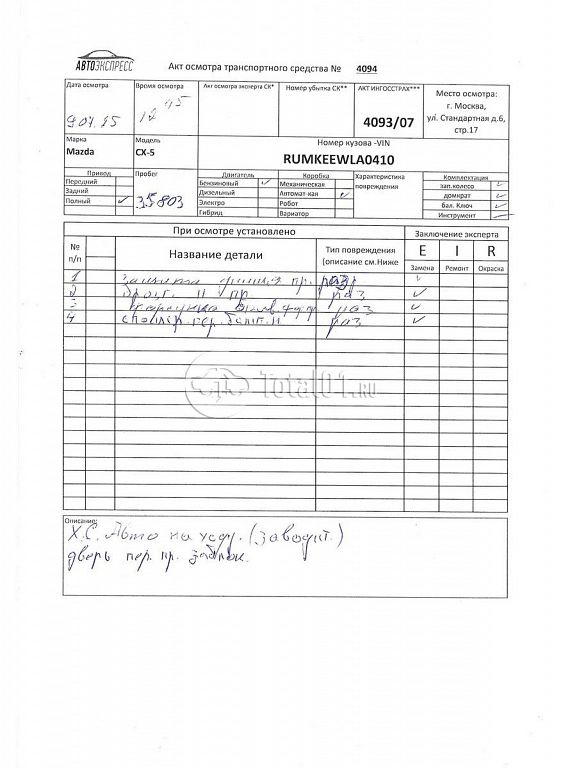 АВТОЭКСПРЕСС
Акт осмотра транспортного средства № 4094
Дата осмотра
Время осмотра
Акт осмотра эксперта СК*
Номер убытка СК**
АКТ ИНГОССТРАХ***
Место осмотра:
г. Москва,
ул. Стандартная д.6,
стр.17
12 45
4093/07
Марка
Модель
Номер кузова -VIN
Mazda
CX-5
RUMKEEWLA0410
Привод
Пробег
Двигатель
Коробка
Характеристика
повреждения
Комплектация
Передний
Бензиновый
Механическая
зап.колесо
Задний
35803
Дизельный
Автомат-кая
домкрат
Полный
Электро
Робот
бал. Ключ
Гибрид
Вариатор
Инструмент
При осмотре установлено
Заключение эксперта
№
п/п
Название детали
Тип повреждения
(описание см.Ниже
E I R
Замена Ремонт Окраска
1 пр. раз
2 пр раз
3 раз
4 спойлер раз
Total01.RU
Описание:
Х.С. Авто на ходу. (заводит.)
дверь пер. пр.